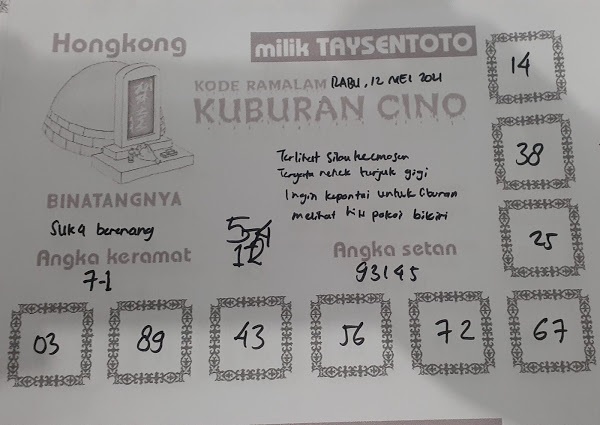 Hongkong
milik TAYSENTOTO
KODE RAMALAM RABU, 12 MEI 2021
KUBURAN CINO
14
38
25
Terlihat sibu
Ternyata nenek tunjuk gigi
Ingin kepantai untuk liburan
melihat pakai bikini
BINATANGNYA
Suka berenang
Angka keramat
7-1
12
Angka setan
93145
03
89
43
56
72
67